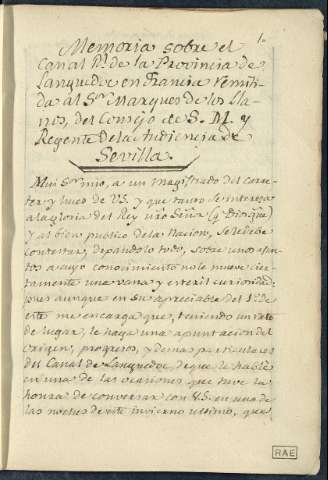 1.
Memoria sobre el
Canal Rl. de la Provincia de
Languedoc en Francia remiti-
da al Sor. Marques de los Lla-
nos, del Consejo de S. M. y
Regente de la Audiencia de
Sevilla.
Mui Sor. mio, a un magistrado del carac-
ter y luces de VS. y que tanto se interesa
a la gloria del Rey nro Señor (q Dios gue)
y al bien publico de la Nacion, se le debe
contestar, y dejandolo todo, sobre unos asun-
tos a cuyo conocimiento no le mueve cier-
tamente una vana y esteril curiosidad;
pues aunque en su apreciable del 1º. de
este me encarga que, teniendo un rato
de lugar, le haga una apuntacion del
origen, progresos, y demas particulares
del Canal de Languedoc, de que le hablé
en una de las ocasiones que tuve la
honra de conversar con VS. en una de
las noches de este invierno ultimo, que
RAE